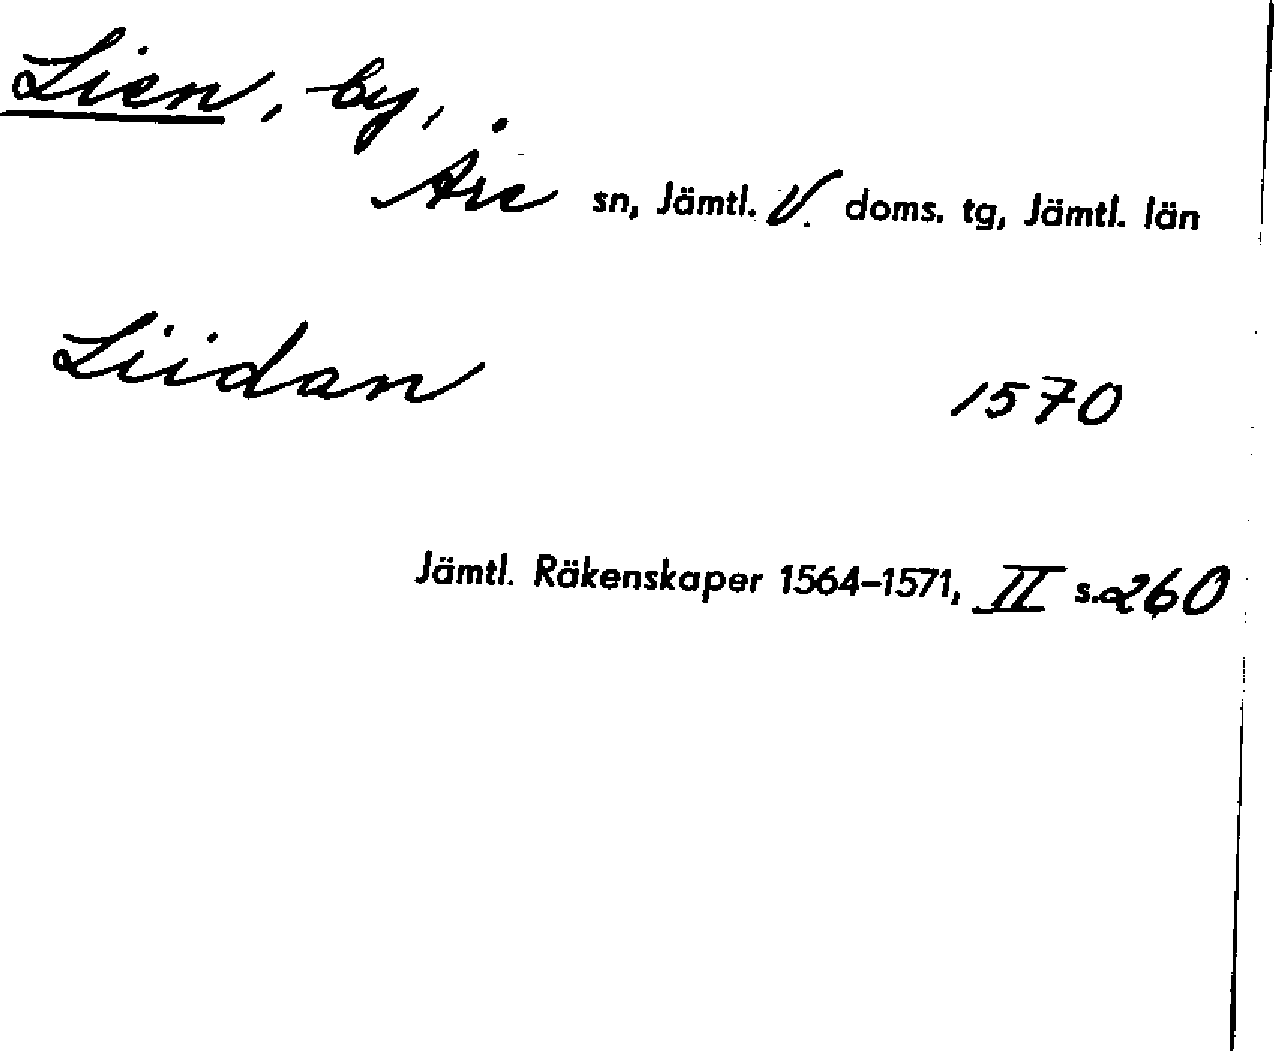 Lien, by,
Åre sn, Jämtl. V. doms. tg, Jämtl. län
Liidan 1570
Jämtl. Räkenskaper 1564–1571, II s. 260